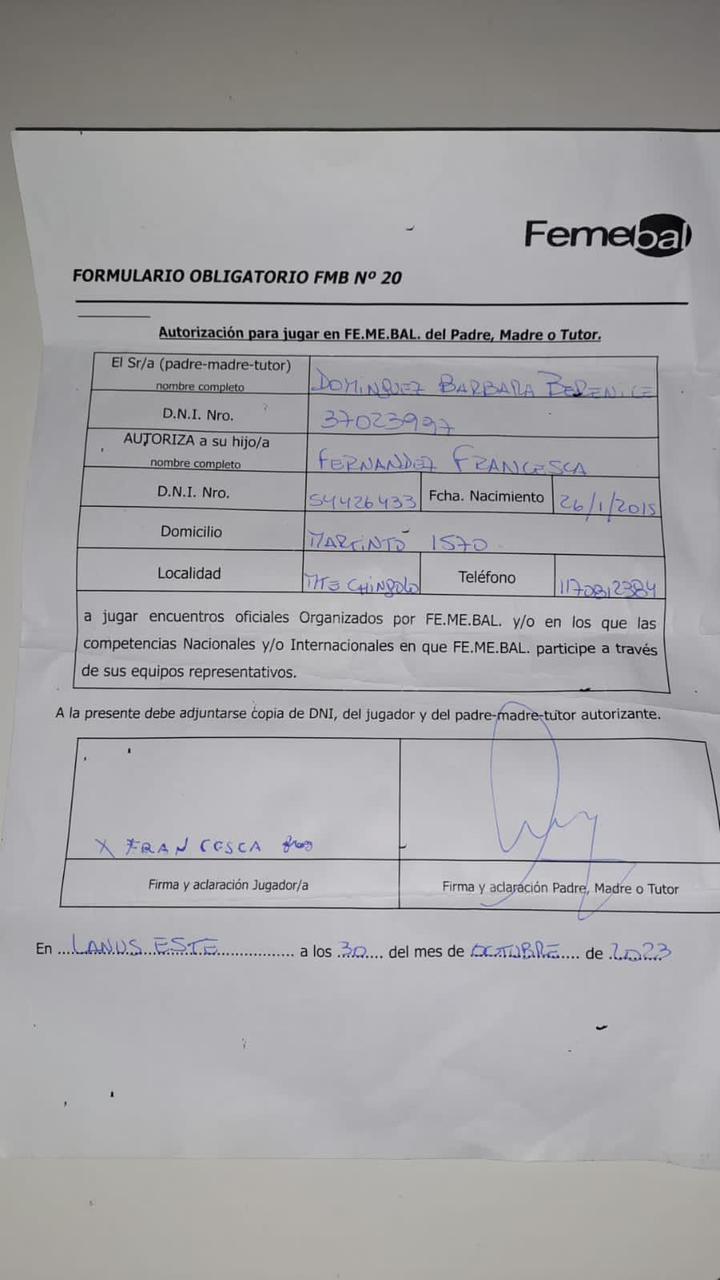 Femebal
FORMULARIO OBLIGATORIO FMB Nº 20
Autorización para jugar en FE.ME.BAL. del Padre, Madre o Tutor.
El Sr/a (padre-madre-tutor)
nombre completo
DOMINGUEZ BARBARA BERENICE
D.N.I. Nro.
37023997
AUTORIZA a su hijo/a
nombre completo
FERNANDEZ FRANCESCA
D.N.I. Nro. 54426433 Fcha. Nacimiento 26/1/2015
Domicilio 1570
Localidad MTE CHINGOLO Teléfono 1170812384
a jugar encuentros oficiales Organizados por FE.ME.BAL. y/o en los que las
competencias Nacionales y/o Internacionales en que FE.ME.BAL. participe a través
de sus equipos representativos.
A la presente debe adjuntarse copia de DNI, del jugador y del padre-madre-tutor autorizante.
X FRANCESCA
Firma y aclaración Jugador/a
Firma y aclaración Padre, Madre o Tutor
En ....LANUS ESTE.................. a los .30.... del mes de OCTUBRE.... de .2023